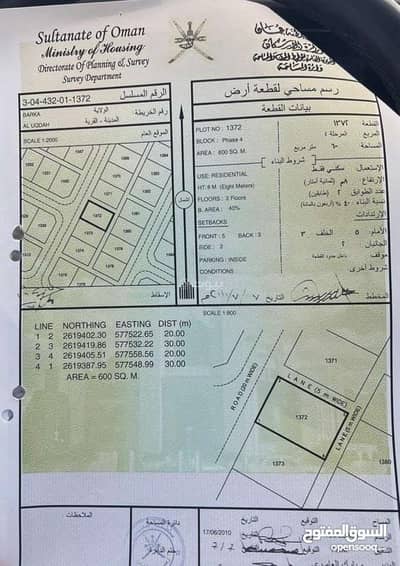 Sultanate of Oman
Ministry of Housing
Directorate Of Planning & Survey
Survey Department
3-04-432-01-1372 الرقم المسلسل
BARKA الولاية
AL UQDAH المدينة - القرية
رقم الخريطة
SCALE 1:2000 الموقع العام
1372
1371
1373
الإسقاط
رسم مساحي لقطعة أرض
بيانات القطعة
PLOT NO : 1372 القطعة ١٣٧٢
BLOCK : Phase 4 المربع مرحلة ٤
AREA : 600 SQ. M. المساحة ٦٠٠ متر مربع
شروط البناء
USE: RESIDENTIAL الإستعمال سكني فقط
HT: 8 M. (Eight Meters) الإرتفاع
FLOORS : 2 Floors عدد الطوابق ٢ (طابقين)
B. AREA : 40% نسبة البناء ٤٠ % (أربعون بالمائة)
SETBACKS الإرتدادات
FRONT : 5 BACK : 3 الأمام ٥ الخلف ٣
SIDE : 2 الجانبان ٢
PARKING : INSIDE موقف
CONDITIONS شروط أخرى
المخطط التوقيع التاريخ
SCALE 1:800
LINE NORTHING EASTING DIST (m)
1 2 2619402.30 577522.65 20.00
2 3 2619419.86 577532.22 30.00
3 4 2619405.51 577558.56 20.00
4 1 2619387.95 577548.99 30.00
AREA = 600 SQ. M.
ROAD (20 m WIDE)
LANE (5 m WIDE)
LANE (5 m WIDE)
1371
1372
1373
1380
الملاحظات
دائرة المساحة
17/06/2010 التاريخ التوقيع
السوق المفتوح
opensooq.com